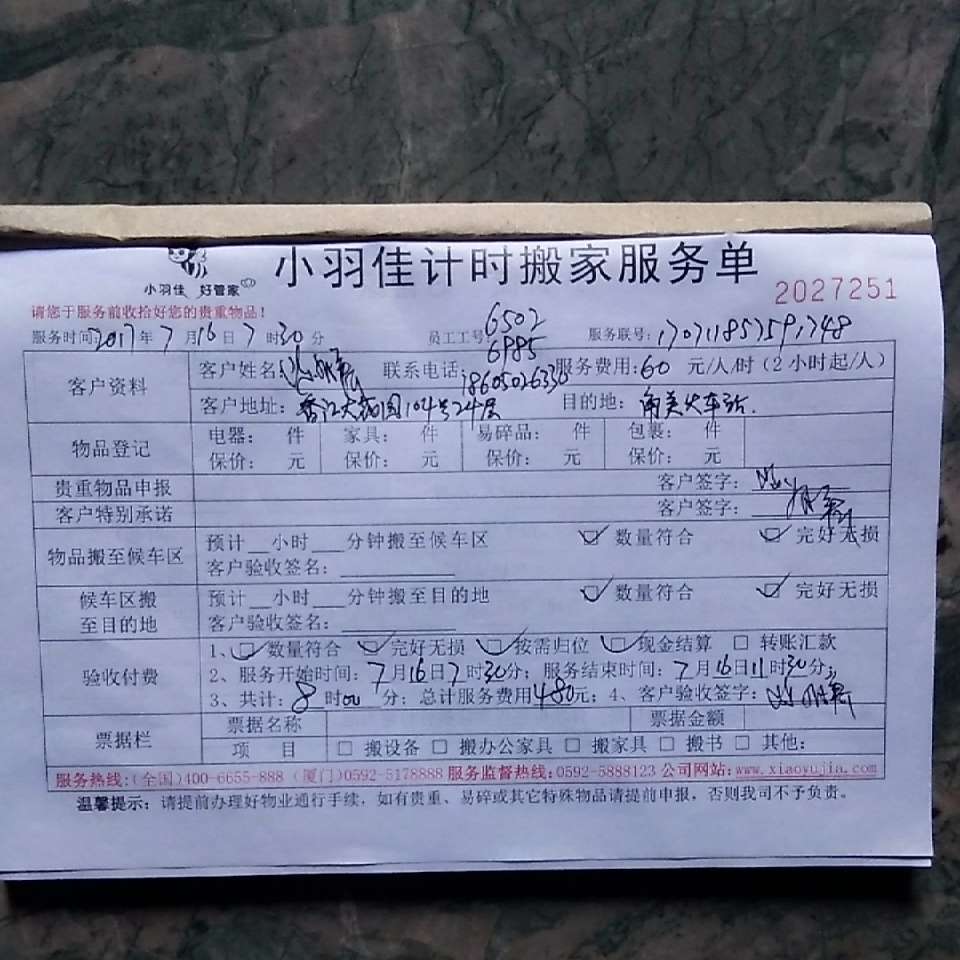 小羽佳计时搬家服务单
小羽佳 好管家
2027251
请您于服务前收拾好您的贵重物品！
服务时间:2017年7月16日7时30分 员工工号:6502 6985 服务联号:
客户资料
客户姓名: 联系电话: 服务费用:60 元/人/时（2小时起/人）
客户地址: 香江大花园104号24层 目的地: 角美火车站.
物品登记
电器: 件 家具: 件 易碎品: 件 包裹: 件
保价: 元 保价: 元 保价: 元 保价: 元
贵重物品申报 客户签字:
客户特别承诺 客户签字:
物品搬至候车区
预计__小时___分钟搬至候车区 ☑ 数量符合 ☑ 完好无损
客户验收签名:
候车区搬至目的地
预计__小时___分钟搬至目的地 ☑ 数量符合 ☑ 完好无损
客户验收签名:
验收付费
1、☑数量符合 ☑完好无损 ☑按需归位 ☑现金结算 □ 转账汇款
2、服务开始时间: 7月16日7时30分; 服务结束时间: 7月16日11时30分;
3、共计: 8时00分; 总计服务费用480元; 4、客户验收签字:
票据栏
票据名称 票据金额
项 目 □ 搬设备 □ 搬办公家具 □ 搬家具 □ 搬书 □ 其他:
服务热线:(全国)400-6655-888 (厦门)0592-5178888 服务监督热线:0592-5888123 公司网站:www.xiaoyujia.com
温馨提示: 请提前办理好物业通行手续，如有贵重、易碎或其它特殊物品请提前申报，否则我司不予负责。